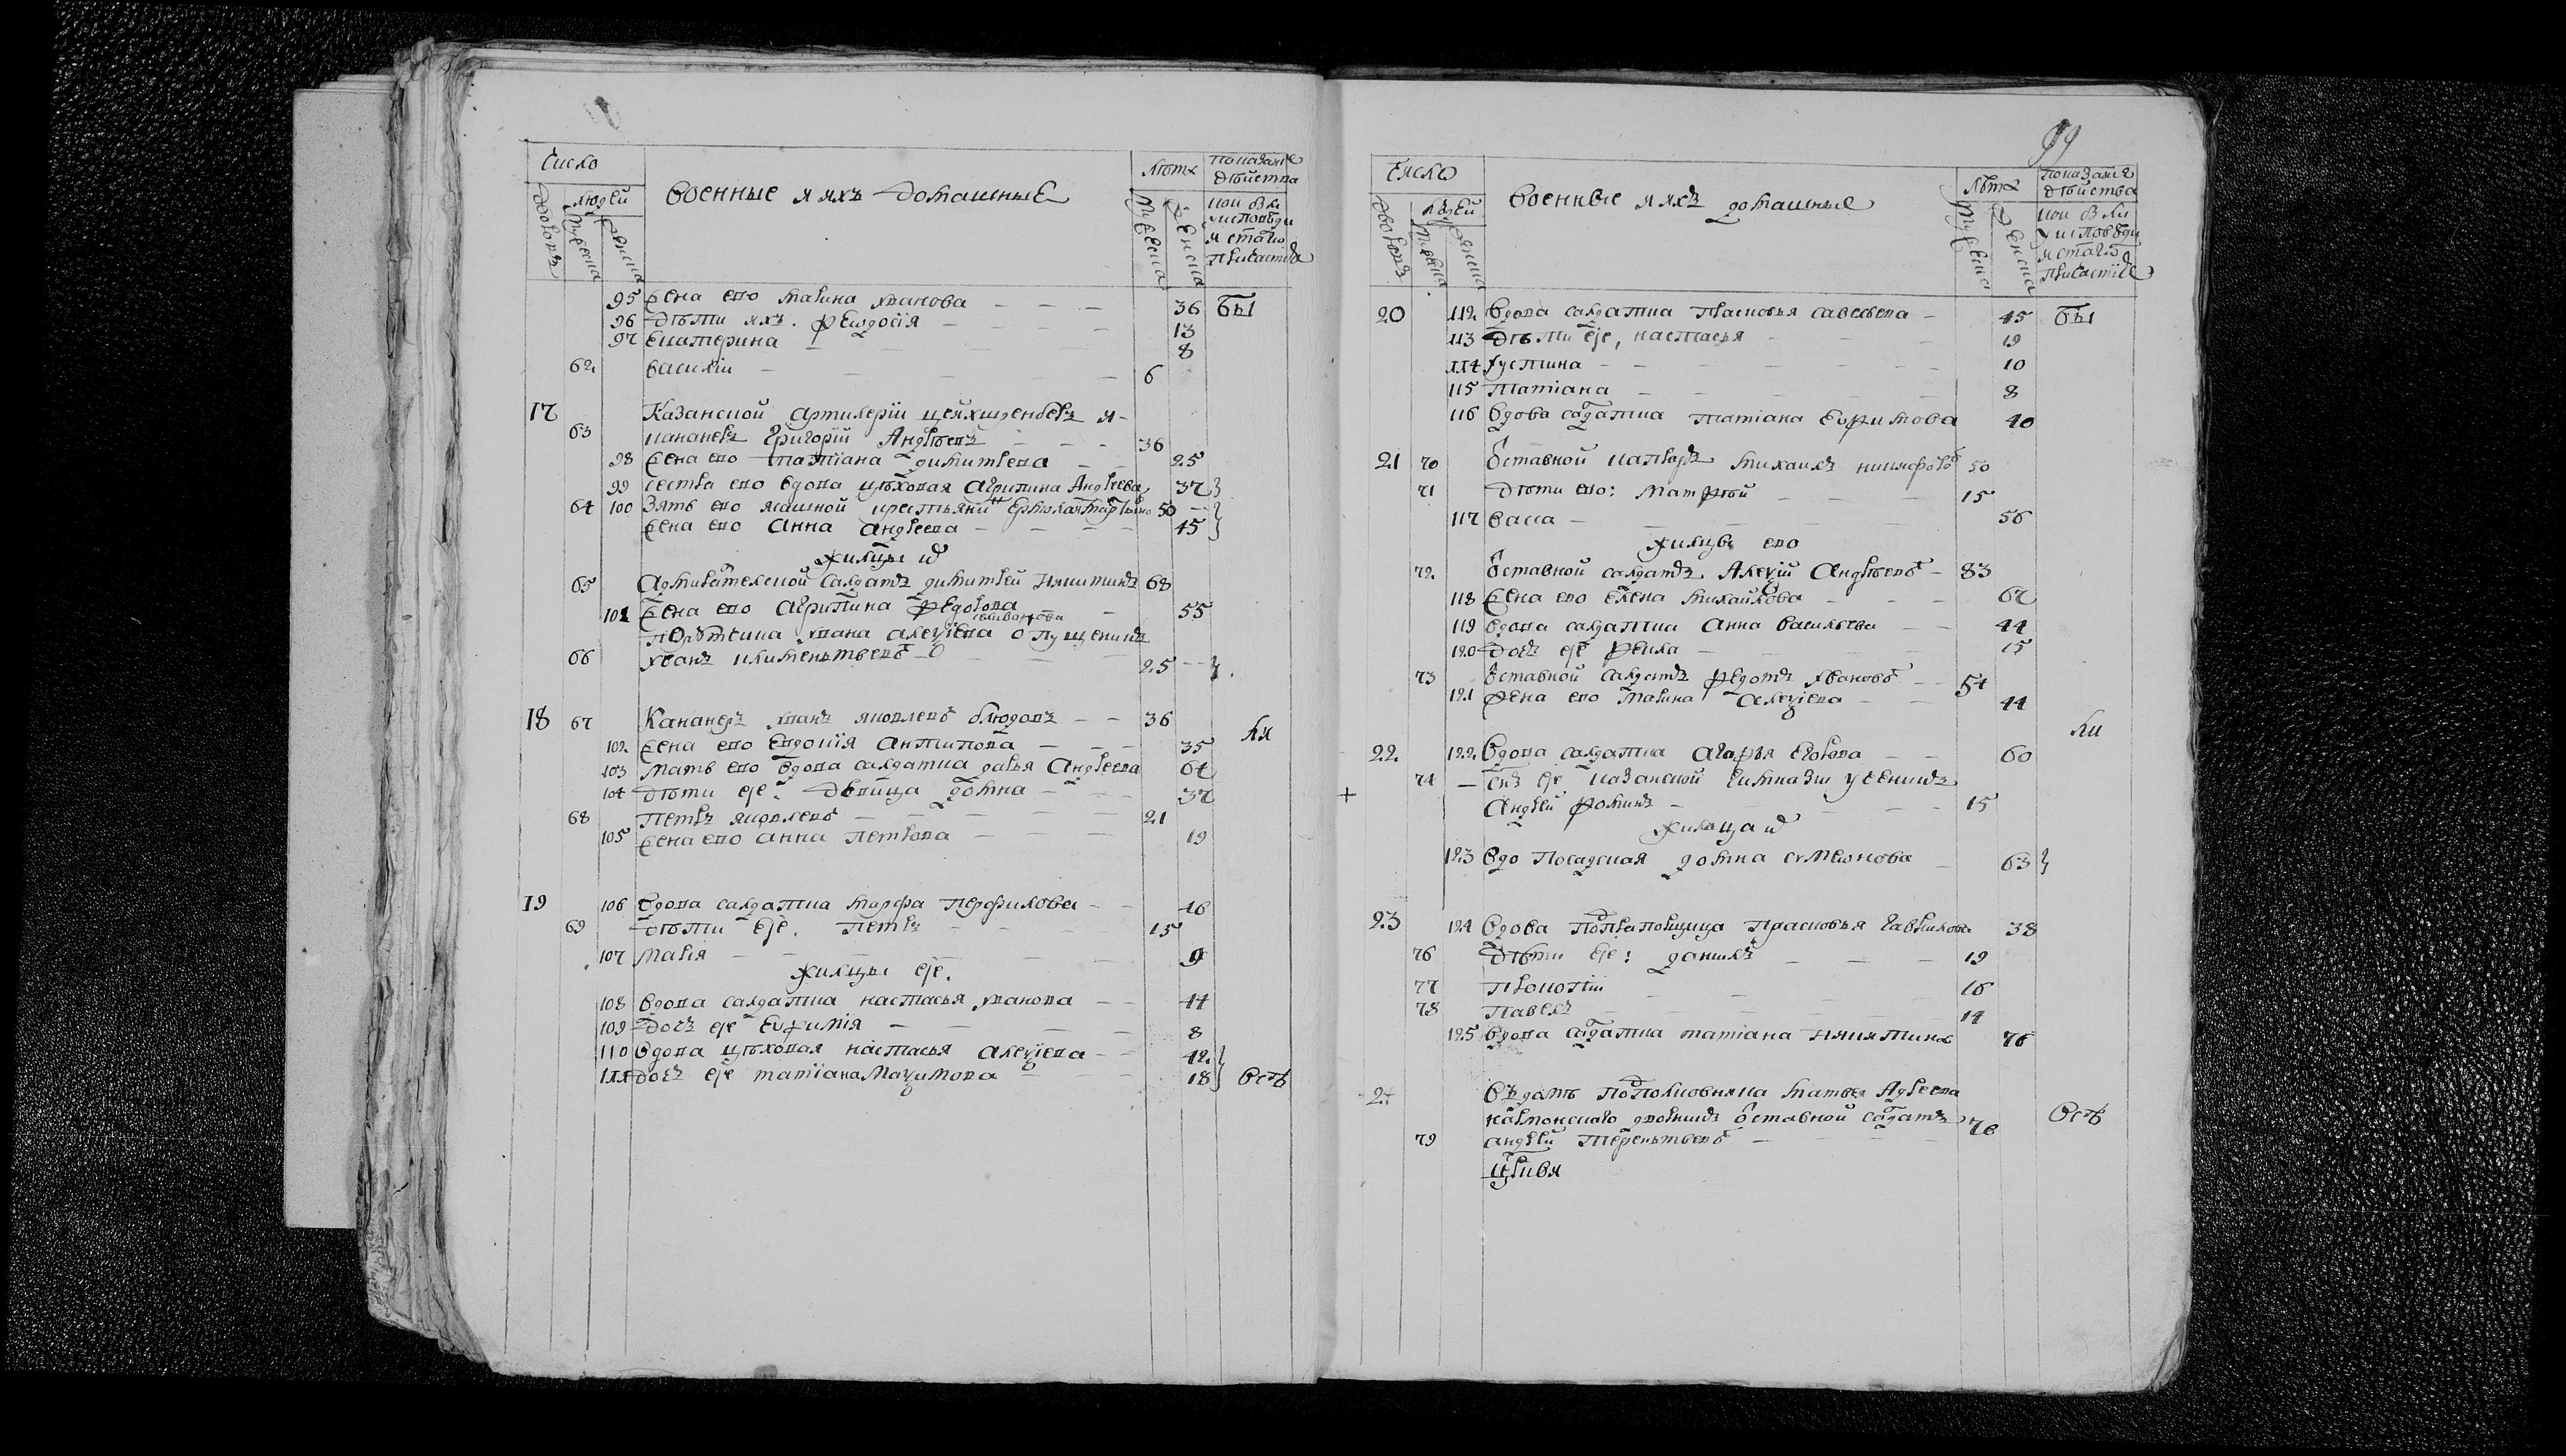 Число
людей
дворовъ
мужеска
женска
Военные и ихъ домашные
Лѣта
мужеска
женска
Показаніе
дѣйства
кои были
у исповѣди
и святаго
причастія
95 Жена ево Марина Иванова 36 бы
96 Дѣти ихъ. Феѡдосія 13
97 Екатерина 8
62 Василій 6
17 Казанской Артилерїи
63 кананеръ Григорїй Андреевъ 36
98 Жена ево Татїана Димитрева 25
99 сестра ево вдова цеховая Агрипина Андреева 37
64 100 Зять ево ясашной крестьянинъ 50
Жена ево Анна Андреева 45
жильцы
65 Адмиралтейской салдатъ Димитрей Никитинъ 68
101 Жена ево Агрипина Федорова 55
Ивана Алеѯіева
66 Иванъ Климентьевъ 25
18 67 Кананеръ Иванъ Яковлевъ Блюдовъ 36
102 Жена ево Евдокїя Антипова 35
103 Мать ево вдова салдатка Дарья Андреева 64
104 Дѣти ее. Девица Домна 37
68 Петръ Яковлевъ 21
105 Жена ево Анна Петрова 19
19 106 Вдова салдатка Марфа Перфилова 46
69 Дѣти ее. Петръ 15
107 Марїя 9
жильцы ее.
108 Вдова салдатка Настасья Иванова 44
109 Дочь ее Евфимїя 8
110 Вдова цеховая Настасья Алеѯїева 42
111 Дочь ее Татїана Маѯимова 18
99
Число
людей
дворовъ
мужеска
женска
Военные и ихъ домашные
Лѣта
мужеска
женска
Показанїе
дѣйства
кои были
у исповѣди
и святаго
причастїя
20 112 Вдова салдатка Прасковья Савельева 45 бы
113 Дѣти ее, Настасья 19
114 Устина 10
115 Татїана 8
116 Вдова салдатка Татїана Евфимова 40
21 70 Ѿставной капралъ Михаилъ Никифоровъ 50
71 Дѣти ево: Матфей 15
117 Васса 56
жильцы ево
72 Ѿставной салдатъ Алеѯїй Андреевъ 83
118 Жена ево Елена Михайлова 67
119 Вдова салдатка Анна Васильева 44
120 Дочь ее Фекла 15
73 Ѿставной салдатъ Федотъ Ивановъ 54
121 Жена ево Марина Алеѯїева 44
22 122 Вдова салдатка Агафья Егорова 60
74 Сынъ ее Казанской Гимназїи ученикъ
+ Андрей Фоминъ 15
жилица
123 Вдо Посадская Домна Сѵмеѡнова 63
23 124 Вдова Прасковья Гаврилова 38
76 Дѣти ее: Данилъ 19
77 Прокопїй 16
78 Павелъ 14
125 Вдова салдатка Татїана Никитина 76
24 Матвея Авреева
Ѿставной салдатъ 76
79 Андрей Терентьевъ